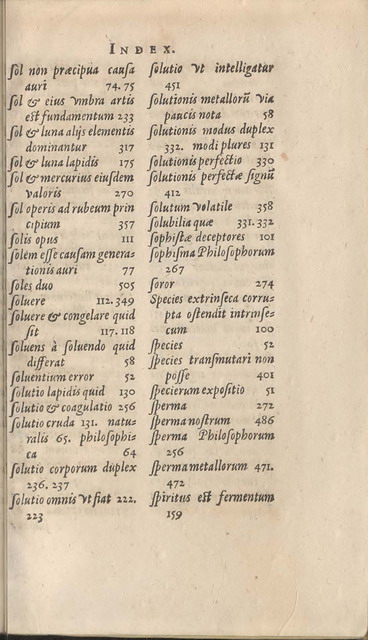 INDEX.
sol non præcipua causa
auri 74.75
sol & eius vmbra artis
est fundamentum 233
sol & luna alijs elementis
dominantur 317
sol & luna lapidis 175
sol & mercurius eiusdem
valoris 270
sol operis ad rubeum prin
cipium 357
solis opus 111
solem esse causam genera-
tionis auri 77
soles duo 505
soluere 112.349
soluere & congelare quid
sit 117.118
soluens à soluendo quid
differat 58
soluentium error 52
solutio lapidis quid 130
solutio & coagulatio 256
solutio cruda 131. natu-
ralis 65. philosophi-
ca 64
solutio corporum duplex
236.237
solutio omnis vt fiat 222.
223
solutio vt intelligatur
451
solutionis metallorū via
paucis nota 58
solutionis modus duplex
332. modi plures 131
solutionis perfectio 330
solutionis perfectæ signū
412
solutum volatile 358
solubilia quæ 331.332
sophistæ deceptores 101
sophisma Philosophorum
267
soror 274
Species extrinseca corru-
pta ostendit intrinse-
cum 100
species 52
species transmutari non
posse 401
specierum expositio 51
sperma 272
sperma nostrum 486
sperma Philosophorum
256
sperma metallorum 471.
472
spiritus est fermentum
159